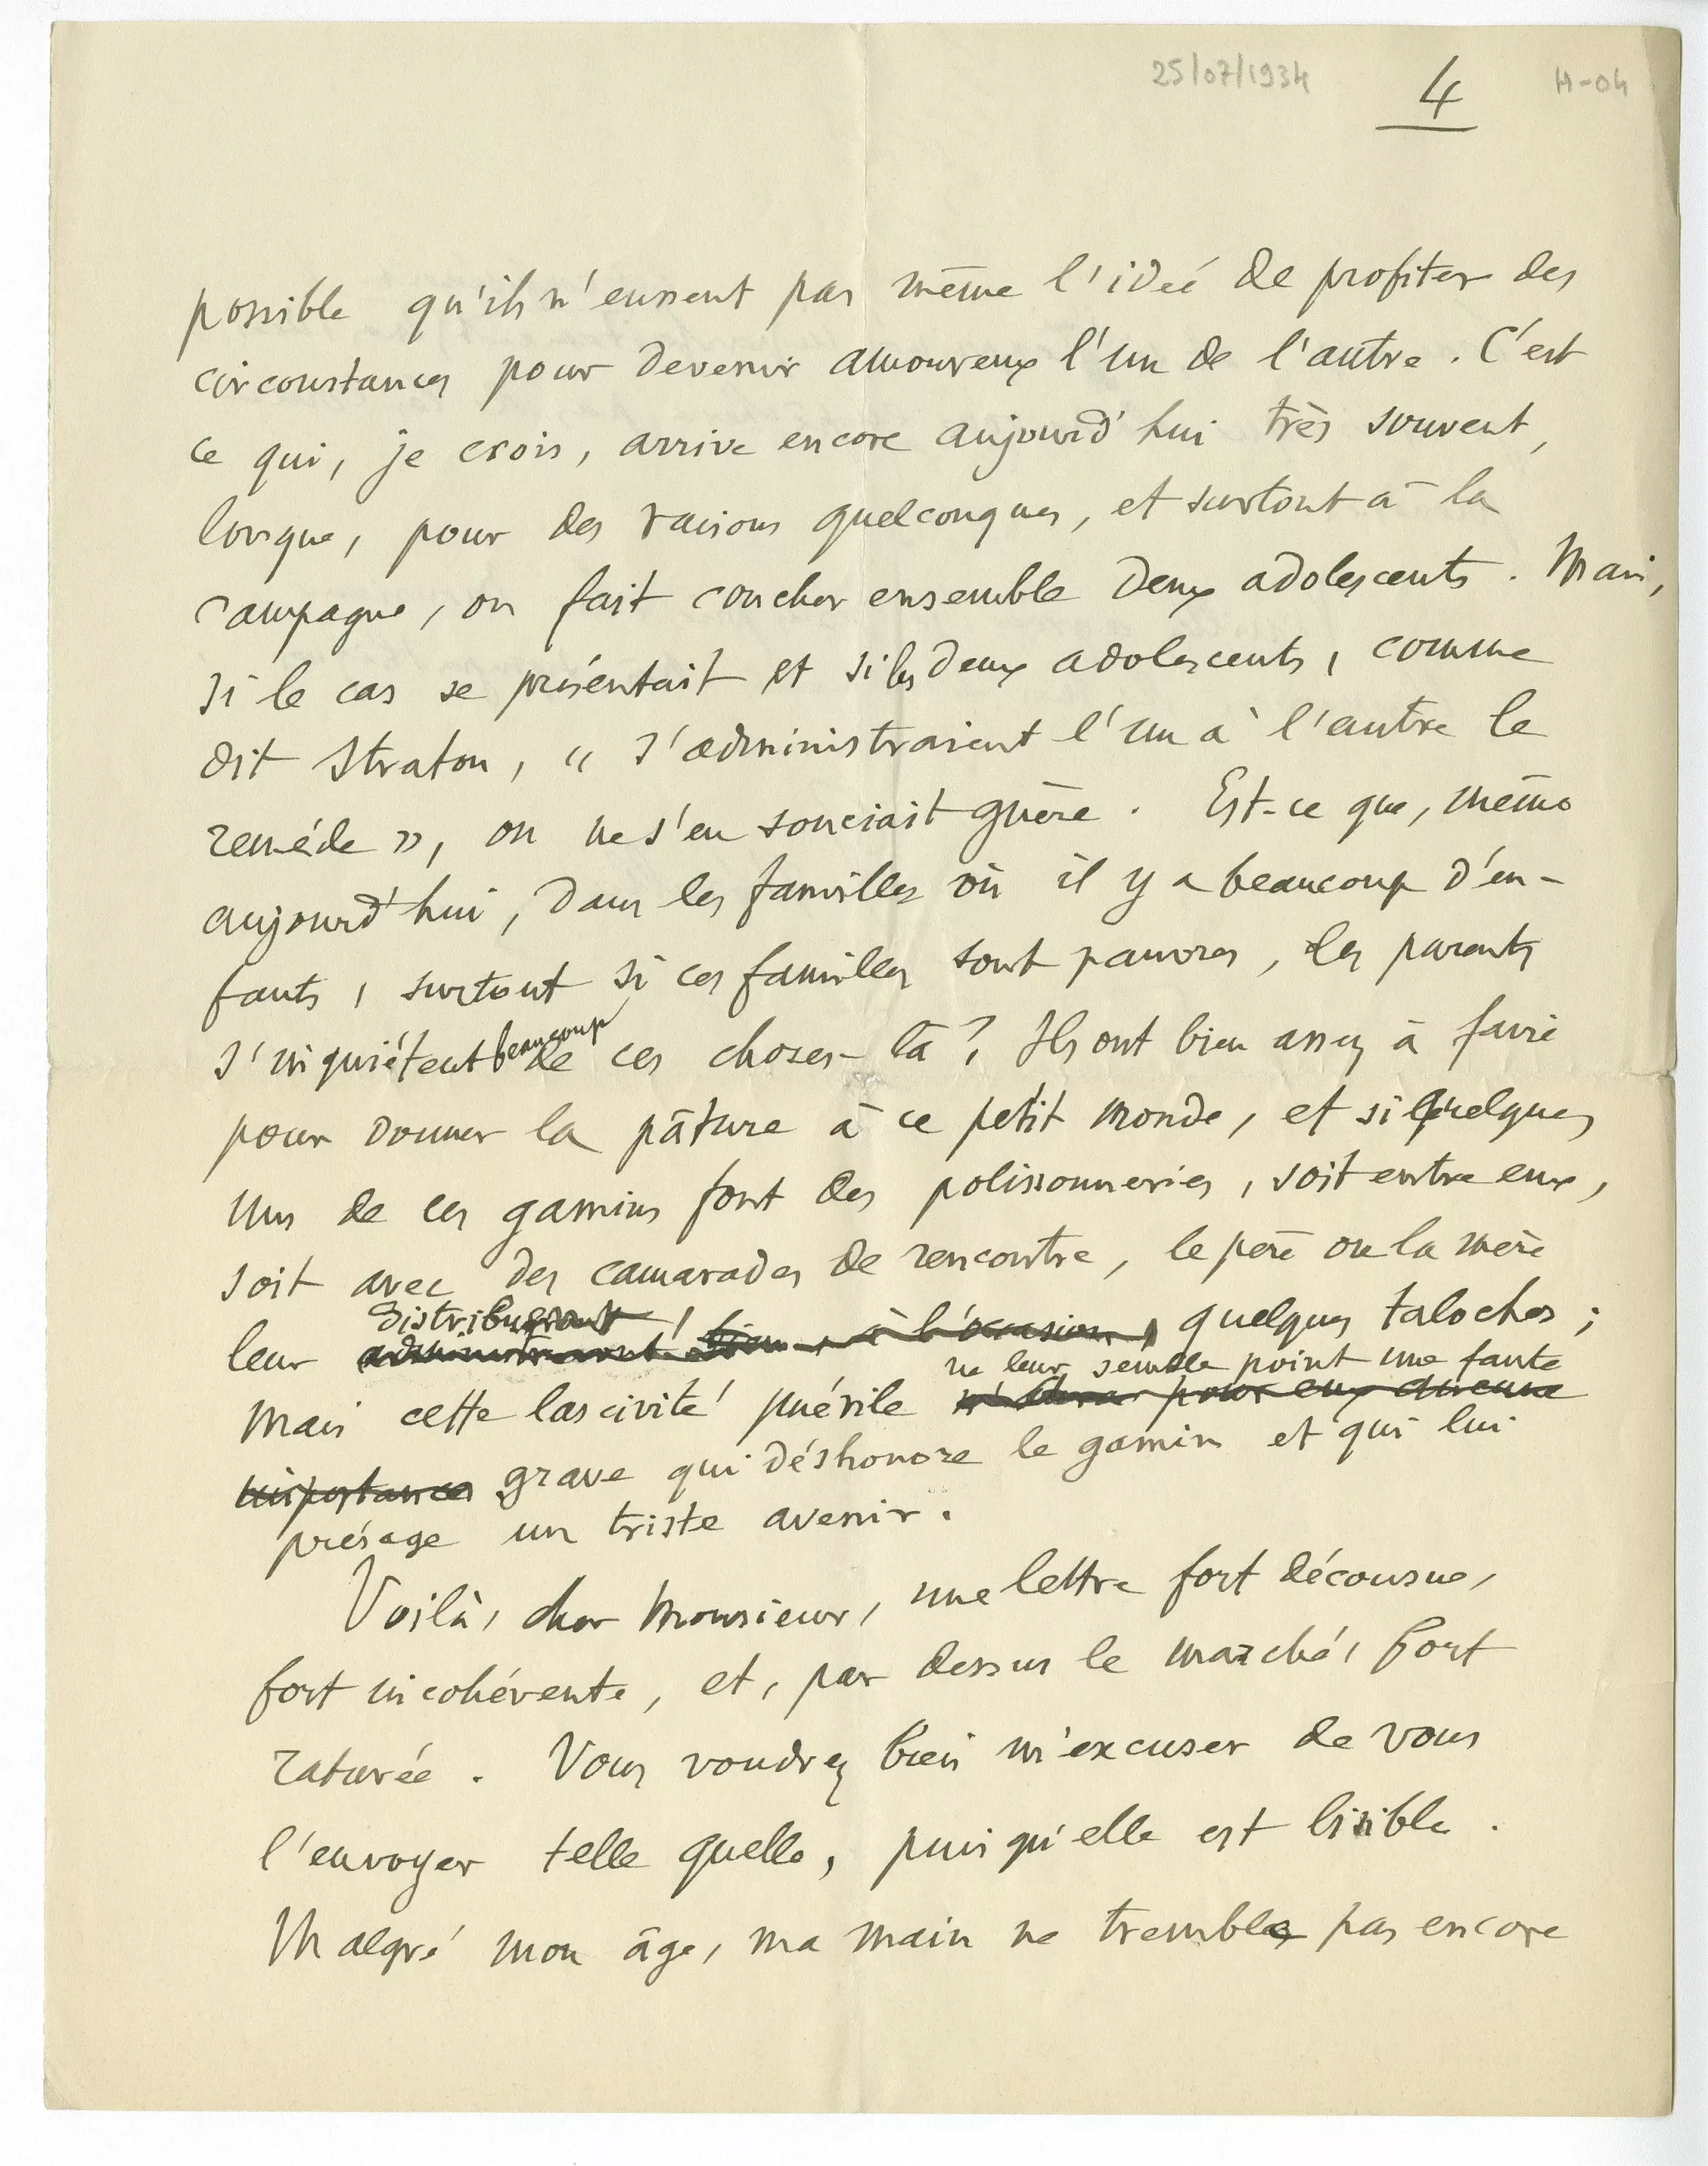 25/07/1934 4 H-04
possible qu'ils n'eussent pas même l'idée de profiter des
circonstances pour devenir amoureux l'un de l'autre. C'est
ce qui, je crois, arrive encore aujourd'hui très souvent,
lorsque, pour des raisons quelconques, et surtout à la
campagne, on fait coucher ensemble deux adolescents. Mais,
si le cas se présentait et si les deux adolescents, comme
dit Straton, « s'administraient l'un à l'autre le
remède », on ne s'en souciait guère. Est-ce que, même
aujourd'hui, dans les familles où il y a beaucoup d'en-
fants, surtout si ces familles sont pauvres, les parents
s'inquiètent beaucoup de ces choses-là ? Ils ont bien assez à faire
pour donner la pâture à ce petit monde, et si quelques
uns de ces gamins font des polissonneries, soit entre eux,
soit avec des camarades de rencontre, le père ou la mère
distribueront
leur administreront bien, à l'occasion, quelques taloches ;
ne leur semble point une faute
mais cette lascivité puérile pour eux aucune
importance grave qui déshonore le gamin et qui lui
présage un triste avenir.
Voilà, cher Monsieur, une lettre fort décousue,
fort incohérente, et, par dessus le marché, fort
raturée. Vous voudrez bien m'excuser de vous
l'envoyer telle quelle, puisqu'elle est lisible.
Malgré mon âge, ma main ne tremble pas encore